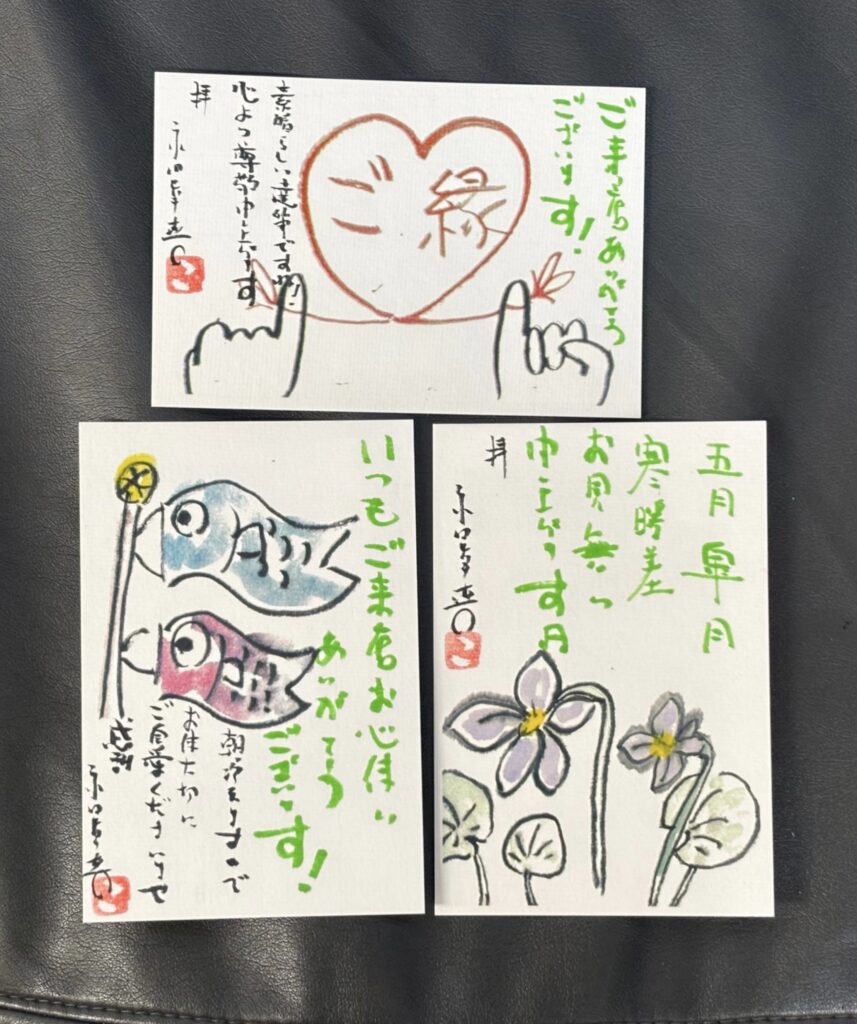 ご来店ありがとう
ございます!
ご縁
素晴らしい達筆ですね!
心より尊敬申し上げます
拝
いつもご来店お心使い
ありがとう
ございます!
朝冷えますので
お体大切に
ご自愛くださいませ
感謝
五月 皐月
寒暖差
お見舞い
申し上げます
拝